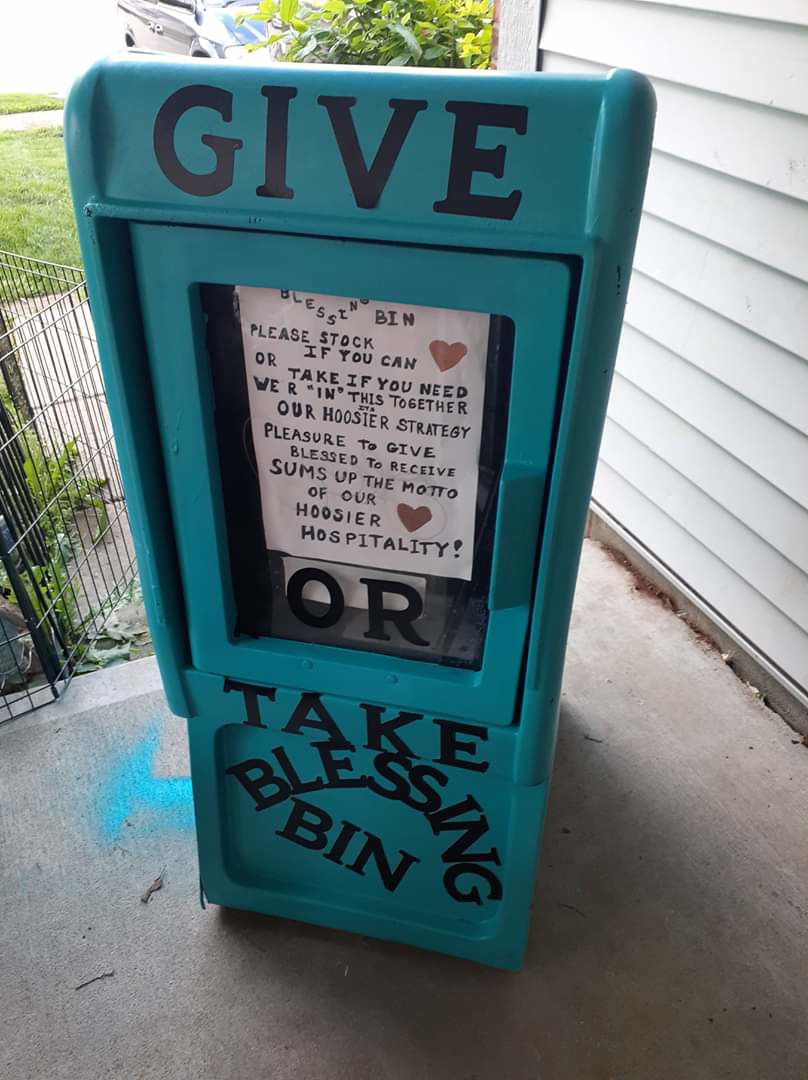 GIVE
BLESSING BIN
PLEASE STOCK
IF YOU CAN
OR TAKE IF YOU NEED
WE R "IN" THIS TOGETHER
ITS
OUR HOOSIER STRATEGY
PLEASURE TO GIVE
BLESSED TO RECEIVE
SUMS UP THE MOTTO
OF OUR
HOOSIER
HOSPITALITY!
OR
TAKE
BLESSING
BIN